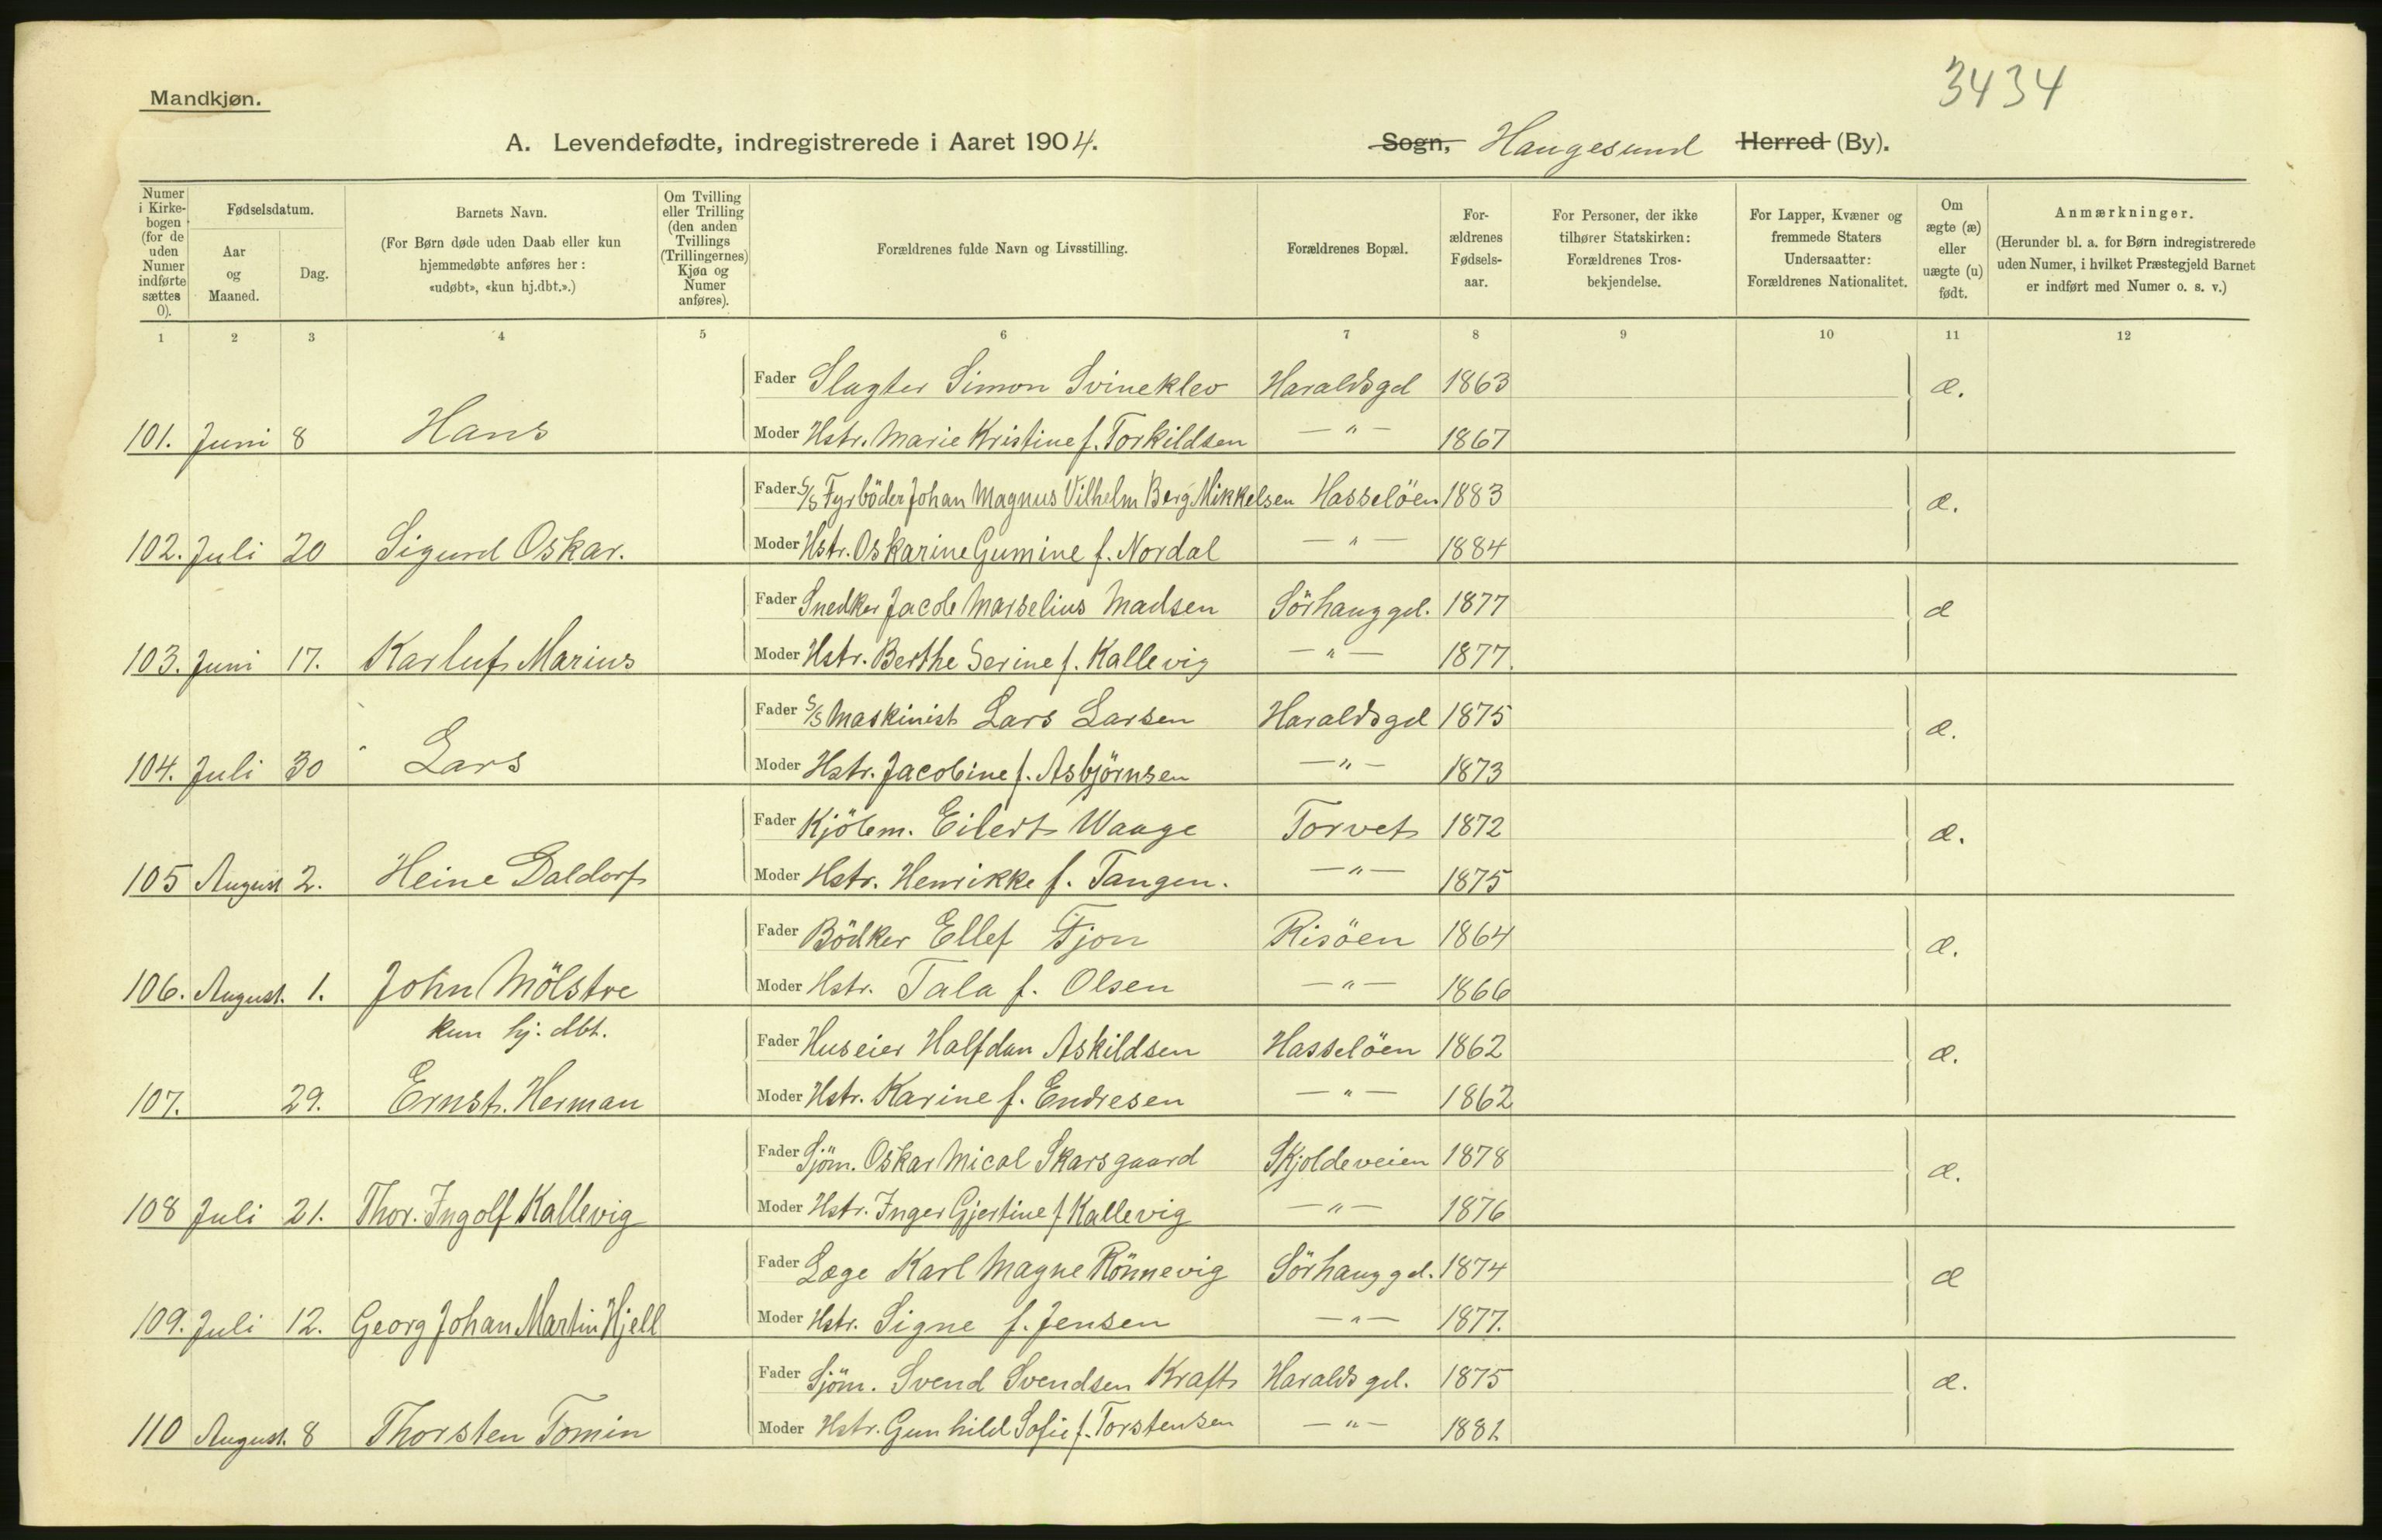 3434
Mandkjøn.
A. Levendefødte, indregistrerede i Aaret 1904. Sogn, Haugesund Herred (By).
Numer i Kirkebogen (for de uden Numer indførte sættes 0).
Fødselsdatum.
Aar og Maaned.
Dag.
Barnets Navn.
(For Børn døde uden Daab eller kun hjemmedøbte anføres her: «udøbt», «kun hj.dbt.».)
Om Tvilling eller Trilling (den anden Tvillings (Trillingernes) Kjøn og Numer anføres).
Forældrenes fulde Navn og Livsstilling.
Forældrenes Bopæl.
Forældrenes Fødselsaar.
For Personer, der ikke tilhører Statskirken: Forældrenes Trosbekjendelse.
For Lapper, Kvæner og fremmede Staters Undersaatter: Forældrenes Nationalitet.
Om ægte (æ) eller uægte (u) født.
Anmærkninger.
(Herunder bl. a. for Børn indregistrerede uden Numer, i hvilket Præstegjeld Barnet er indført med Numer o. s. v.)
1 2 3 4 5 6 7 8 9 10 11 12
Fader Slagter Simon Svineklev Haraldsgd 1863 æ.
101. Juni 8 Hans Moder Hstr. Marie Kristine f. Torkildsen —"— 1867
Fader S/S Fyrböder Johan Magnus Vilhelm Berg Mikkelsen Hasselöen 1883 æ.
102. Juli 20 Sigurd Oskar. Moder Hstr. Oskarine Gumine f. Nordal —"— 1884
Fader Snedker Jacob Marselius Madsen Sörhauggd. 1877 æ
103. Juni 17. Karluf Marius Moder Hstr. Berthe Serine f. Kallevig —"— 1877.
Fader S/S Maskinist Lars Larsen Haraldsgd 1875 æ.
104. Juli 30 Lars Moder Hstr. Jacobine f. Asbjörnsen —"— 1873
Fader Kjöbm. Eilert Waage Torvet 1872 æ.
105 August 2. Heine Daldorf Moder Hstr. Henrikke f. Tangen. —"— 1875
Fader Bödker Ellef Fjon Risöen 1864 æ.
106. August. 1. John Mölstre Moder Hstr. Tala f. Olsen —"— 1866
kun hj. dbt. Fader Huseier Halfdan Askildsen Hasselöen 1862 æ.
107. 29. Ernst. Herman Moder Hstr. Karine f. Endresen —"— 1862
Fader Sjöm. Oskar Mical Skarsgaard Skjoldeveien 1878 æ.
108 Juli 21. Thor. Ingolf Kallevig Moder Hstr. Inger Gjertine f. Kallevig —"— 1876
Fader Læge Karl Magne Rönnevig Sörhauggd. 1874 æ
109. Juli 12. Georg Johan Martin Hjell Moder Hstr. Signe f. Jensen —"— 1877.
Fader Sjöm. Svend Svendsen Kraft Haraldsgd. 1875 æ.
110 August. 8 Thorsten Tomin Moder Hstr. Gunhild Sofie f. Torstensen —"— 1881